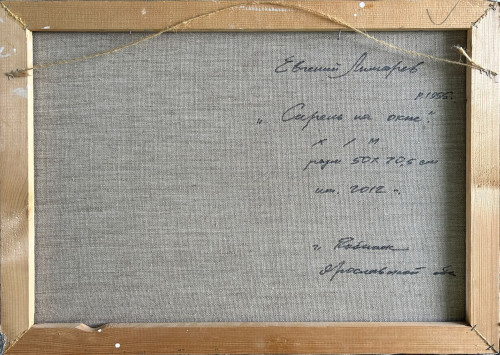 Евгений Лимарев
р. 1955г.
„Сирень на окне".
х / м
разм 50 х 70,5 см
ист. 2012 г.
г.
Ярославской обл